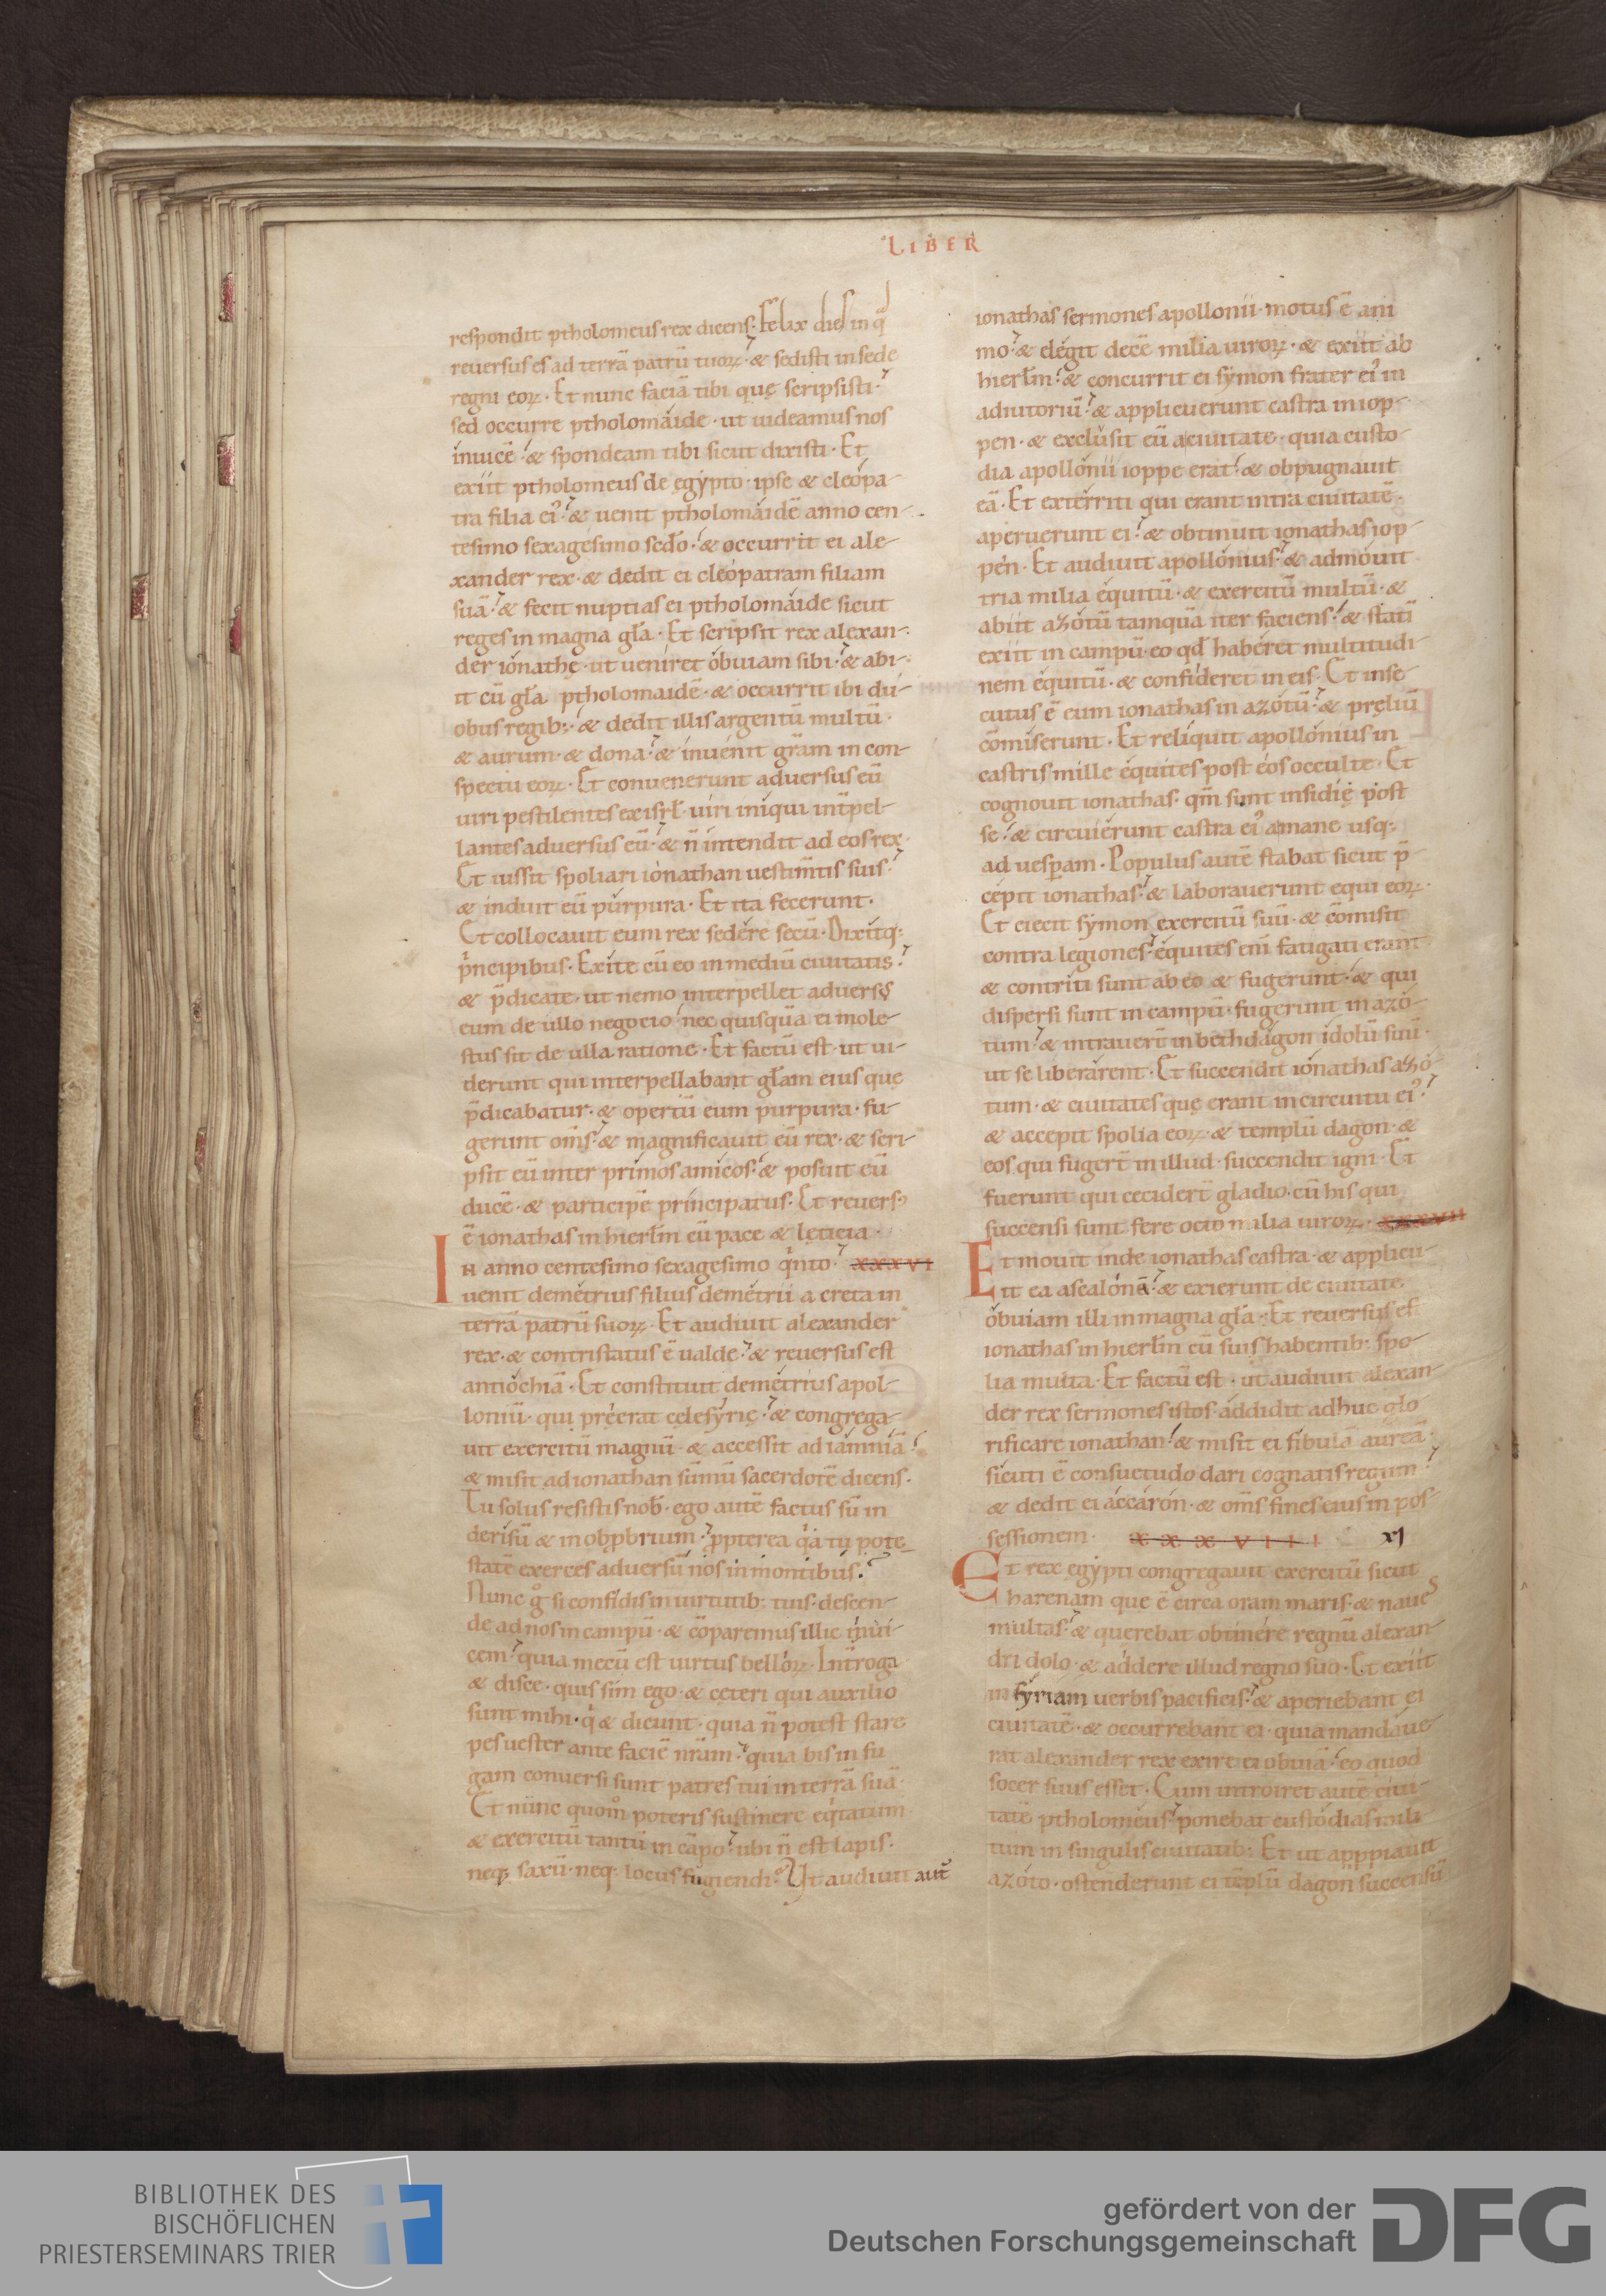 LIBER
respondit ptholomeus rex dicens; Felix dies in q̄
reuersus es ad terrā patrū tuoꝝ; & sedisti in sede
regni eoꝝ. Et nunc faciā tibi quę scripsisti;
sed occurre ptholomáide. ut uideamus nos
inuicē; & spondeam tibi sicut dixisti. Et
exiit ptholomeus de egýpto. ipse & cleópa-
tra filia ei᾿; & uenit ptholomáidē anno cen-
tesimo sexagesimo scd̄o; & occurrit ei ale-
xander rex. & dedit ei cleópatram filiam
suā; & fecit nuptias ei ptholomáide sicut
reges in magna gl̄a. Et scripsit rex alexan-
der iónathę. ut ueniret óbuiam sibi; & abi-
it cū gl̄a ptholomaidē. & occurrit ibi dú-
obus regib:; & dedit illis argentū multū.
& aurum. & dona; & inuénit gr̄am in con-
spectu eoꝝ. Et conuenerunt aduersus eū
uiri pestilentes ex isrł. uiri iniqui int̄pel-
lantes aduersus eū; & n̄ intendit ad eos rex.
Et iussit spoliari iónathan uestim̄tis suis;
& induit eū púrpura. Et ita fecerunt.
Et collocauit eum rex sedére secū. Dixitq:
p̓ncipibus. Exíte cū eo in mediū ciuitatis;
& p̄dicate. ut nemo interpellet aduersꝰ
eum de ullo negocio; nec quisquā ei mole-
stus sit de ulla ratione. Et factū est. ut ui-
derunt qui interpellabant gl̄am eius quę
p̄dicabatur. & opertū eum purpura. fu-
gerunt om̄s; & magnificauit eū rex. & scri-
psit eū inter prímos amícos; & posuit eū
ducē. & participē príncipatus. Et reuersꝰ
ē ionathas in hierłm cū pace & lęticia.
In anno centesimo sexagesimo q̓nto; xxxvi
uenit demétrius filius demétrii a creta in
terrā patrū suoꝝ. Et audiuit alexander
rex. & contristatus ē ualde; & reuersus est
antiochiā. Et constituit demétrius apol-
loniū. qui preerat celesýrię; & congrega-
uit exercitū magnū. & accessit ad iámniā;
& misit ad ionathan sūmū sacerdotē dicens.
Tu solus resistis nob̄. ego autē factus sū in
derísū & in obp̱brium; p̱pterea q̓a tu pote-
statē exerces aduersū nos in montibus;
Nunc g̊ si confidis in uirtutib: tuis. descen-
de ad nos in campū. & cōparemus illic inui-
cem; quia mecū est uirtus bellóꝝ. Int̄roga
& disce. quis sim ego. & cęteri qui auxilio
sunt mihi. q̓ & dicunt. quia n̄ potest stare
pes uester ante faciē nr̄am; quia bis in fu
gam conuersi sunt patres tui in terrā suā.
Et nunc quom̊ poteris sustinere eq̓tatum
& exercitū tantū in cāpo; ubi n̄ est lapis.
neq: saxū. neq: locus fúgiendi; Vt audiuit aut̄
ionathas sermones apollonii. motus ē ani
mo; & elegit decē milia uiroꝝ. & exiit ab
hierłm; & concurrit ei sýmon frater ei᾿ in
adiutoriū; & applicuerunt castra in iop-
pen. & exclúsit eū a ciuitate. quia custo-
dia apollónii ioppe erat; & obpugnauit
eā. Et extérriti qui erant intra ciuitatē.
aperuerunt ei; & obtinuit ionathas iop-
pén. Et audiuit apollónius; & admóuit
tria milia équitū. & exercitū multū. &
abiit azótū tamquā iter faciens; & statī
exiit in campū. eo qd̄ habéret multitudi-
nem équitū. & confideret in eis. Et inse-
cutus ē eum ionathas in azótū; & pręliū
cōmiserunt. Et relíquit apollónius in
castris mille équites post éos occulte. Et
cognouit ionathas. qm̄ sunt insidię post
se; & circuiérunt castra ei᾿ a mane usq:
ad uesꝑam. Populus autē stabat sicut p̄
cépit ionathas; & laborauerunt equi eoꝝ.
Et eiecit sýmon exercitū suū. & cōmisit
contra legiones; équites eni fatigati erant
& contríti sunt ab eo & fugerunt; & qui
dispersi sunt in campū. fugerunt in azó-
tum; & intrauert̄ in bethdágon idolū suū.
ut se liberárent. Et succendit iónathas azó-
tum. & ciuitates quę erant in circuitu ei᾿;
& accepit spolia eoꝝ. & templū dagon. &
eos qui fugert̄ in illud. succendit igni. Et
fuerunt qui cecidert̄ gladio. cū his qui
succensi sunt fere octo milia uiroꝝ. xxxvii
Et mouit inde ionathas castra. & applicu-
it ea ascalónā; & exierunt de ciuitate
óbuiam illi in magna gl̄a. Et reuersus es̄
ionathas in hierłm cū suis habentib: spo-
lia multa. Et factū est. ut audiuit alexan-
der rex sermones istos. áddidit adhuc glo
rificare ionathan; & misit ei fíbulā aúreā.
sicuti ē consuetudo dari cognatis regum;
& dedit ei áccáron. & om̄s fines eius in pos-
sessionem. xxxviii xi
Et rex egýpti congregauit exercitū sicut
harenam quę ē circa oram maris. & nauēs
multas; & querebat obtinére regnū alexan-
dri dolo. & áddere illud regno suo. Et exiit
in sýriam uerbis pacificis; & aperiebant ei
ciuitatē. & occurrebant ei. quia mandáue-
rat alexander rex exire ei obuiā; eo quod
socer suus esset. Cum introiret autē ciui-
tatē ptholoméus; ponebat custódias mili
tum in singulis ciuitatib: Et ut app̱piauit
azóto. ostenderunt ei tēplū dagon succensū
BIBLIOTHEK DES
BISCHÖFLICHEN
PRIESTERSEMINARS TRIER
gefördert von der
Deutschen Forschungsgemeinschaft
DFG